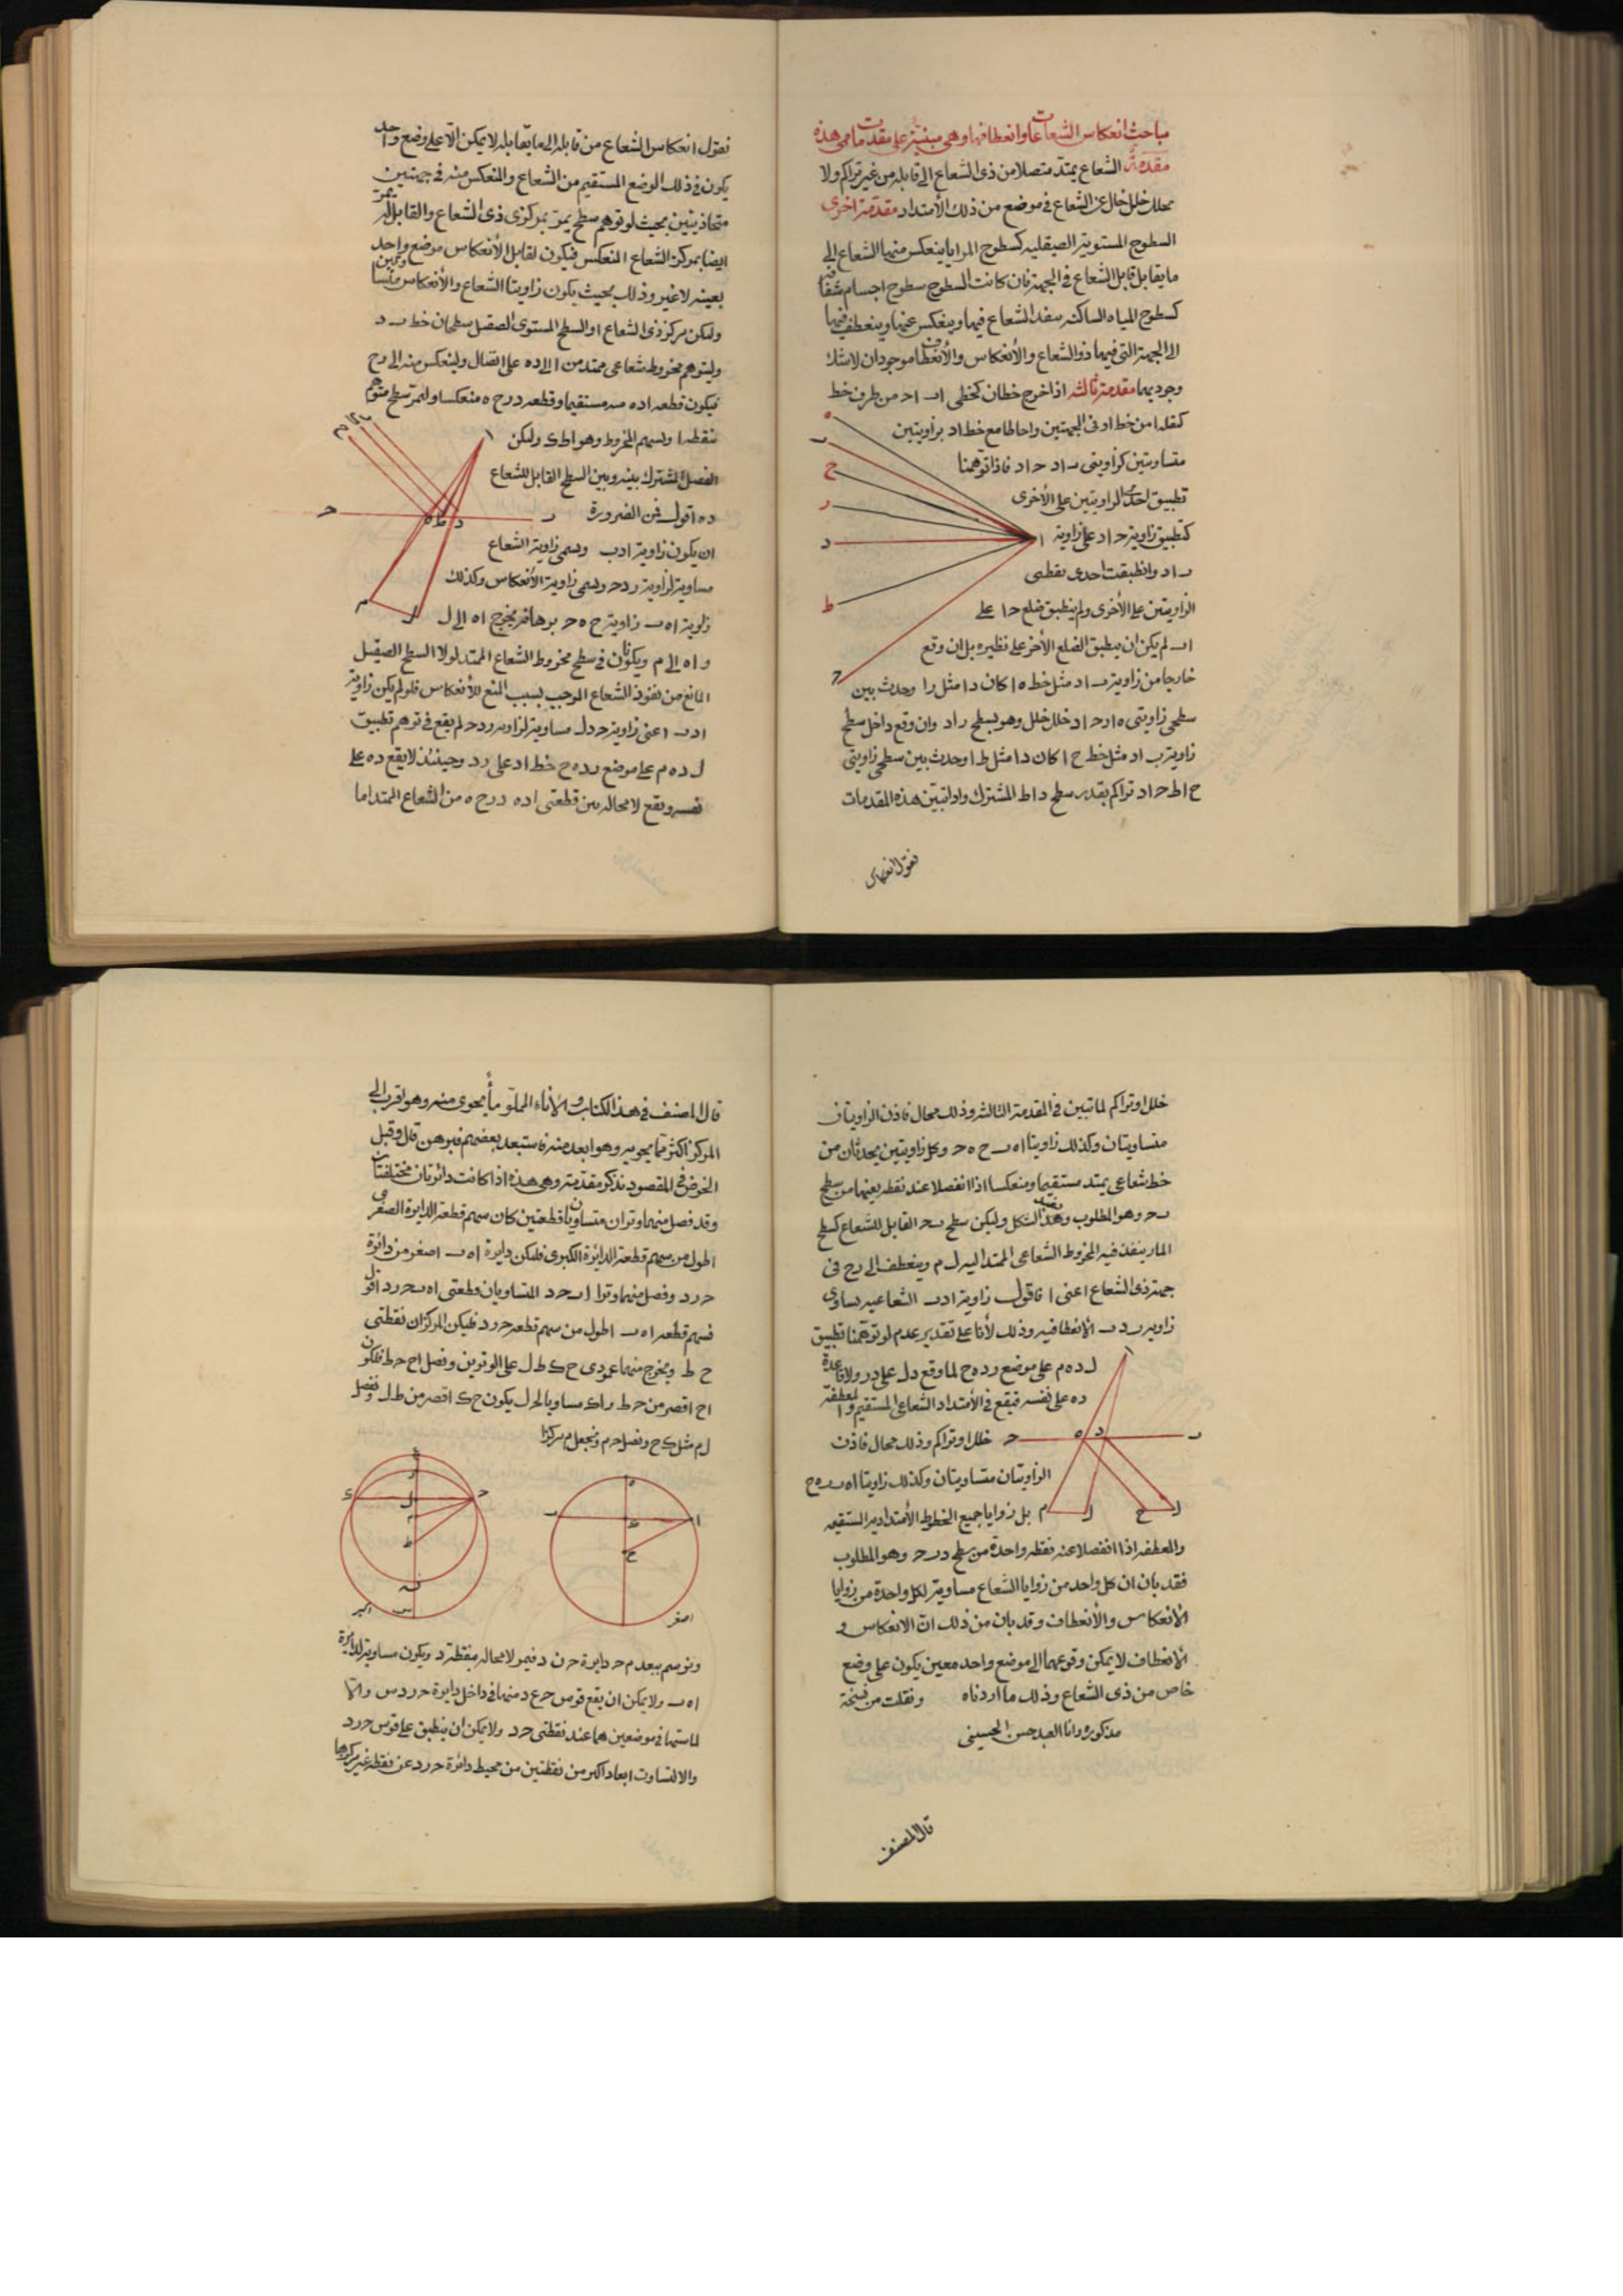 مباحث انعكاس الشعاعات وانعطافها وهى مبنية على مقدمات هى هذه
مقدمة الشعاع يمتد متصلا من ذى الشعاع الى قابله من غير تراكم ولا
تخلل خلل خال عن الشعاع فى موضع من ذلك الأمتداد مقدمة اخرى
السطوح المستوية الصيقلية كسطوح المرايا ينعكس منها الشعاع الى
ما يقابل قابل الشعاع فى الجهة فان كانت السطوح سطوح اجسام شفافة
كسطوح المياه الساكنه ينفذ الشعاع فيها وينعكس عنها وينعطف فيها
الى الجهة التى فيها ذو الشعاع والأنعكاس والأنعطاف موجودان لاشك
وجوديهما مقدمة ثالثه اذا اخرج خطان كخطى اب اح من طرف خط
كنقطة ا من خط اد فى الجهتين واحاطا مع خط اد بزاويتين
متساويتين كزاويتى ب اد ح اد فاذا توهمنا
تطبيق احدى الزاويتين على الأخرى
كتطبيق زاوية ح اد على زاوية
ب اد وانطبقت احدى نقطتى
الزاويتين على الأخرى ولم ينطبق ضلع ح ا على
اب لم يكن ان ينطبق الضلع الأخر على نظيره بل ان وقع
خارجا من زاوية ب اد مثل خط ه ا كان د ا مثل را وحدث بين
سطحى زاويتى ه ا ر ح اد خلل خلل وهو بسطح ر اد وان وقع داخل سطح
زاوية ب اد مثل خط ح ا كان د ا مثل ط ا وحدث بين سطحى زاويتى
ح اط ح اد تراكم بقدر سطح د اط المشترك واذا تبين هذه المقدمات
نقول انعكاس
نقول انعكاس الشعاع من قابله الى ما يقابله لا يمكن الا على وضع واحد
يكون فى ذلك الوضع المستقيم من الشعاع والمنعكس منه فى جهتين
متحاذيتين بحيث لو توهم سطح يمر بمركزى ذى الشعاع والقابل له يمر
ايضا بمركز الشعاع المنعكس فيكون لقابل الأنعكاس موضع واحد
بعينه لا غير وذلك بحيث يكون زاويتا الشعاع والأنعكاس متساويتين
وليكن مركز ذى الشعاع ا والسطح المستوى الصقيل سطحا من خط ب د
وليتوهم مخروط شعاعى ممتد من ا الى ده على اتصال ولينعكس منه الى رح
فيكون قطعه اده منه مستقيما وقطعه درح ه منعكسا وليمر سطح متوهم
بنقطة ا وبسهم المخروط وهو اطك وليكن
الفصل المشترك بينه وبين السطح القابل للشعاع
ده اقول فمن الضرورة
ان يكون زاوية ادب وسمى زاوية الشعاع
مساوية لزاوية ردح وسمى زاوية الأنعكاس وكذلك
زاوية اه ب زاوية ح ه ح برهانه نخرج اه الى ل
و اه الى م ويكونان فى سطح مخروط الشعاع الممتد لولا السطح الصيقل
المانع من نفوذ الشعاع الموجب بسبب المنع للأنعكاس فلو لم يكن زاوية
ادب اعنى زاوية ح دل مساوية لزاوية ردح لم يقع فى توهم تطبيق
ل ده م على موضع رده ح خط اد على رد وحينئذ لا يقع ده على
نفسه ويقع لا محاله بين قطعتى اده درح ه من الشعاع الممتد اما
خلل او تراكم لما تبين فى المقدمة الثالثه وذلك محال فاذن الزاويتان
متساويتان وكذلك زاويتا اه ب ح ه ح وكل زاويتين يحدثان من
خط شعاعى يمتد مستقيما ومنعكسا اذا انفصلا عند نقطه بعينها من سطح
ب ح وهو المطلوب وبعد هذا الشكل وليكن سطح ب ح القابل للشعاع كسطح
الماء ينفذ فيه المخروط الشعاعى الممتد اليه ل م وينعطف الى رح فى
جهة ذى الشعاع اعنى ا فاقول زاوية ادب الشعاعيه يساوى
زاوية ردب الأنعطافيه وذلك لأنا على تقدير عدم لو توهمنا تطبيق
ل ده م على موضع رده ح لما وقع دل على در ولا قاعدة
ده على نفسه فيقع فى الأمتداد الشعاعى المستقيم والمعطفة
خلل او تراكم وذلك محال فاذن
الزاويتان متساويتان وكذلك زاويتا اه ب ب ه ح
بل زوايا جميع الخطوط الأمتداديه المستقيمه
والمعطفه اذا انفصلا عند نقطه واحدة من سطح درح وهو المطلوب
فقد بان ان كل واحد من زوايا الشعاع مساوية لكل واحدة من زوايا
الأنعكاس والأنعطاف وقد بان من ذلك ان الانعكاس و
الأنعطاف لا يمكن وقوعهما الى موضع واحد معين يكون على وضع
خاص من ذى الشعاع وذلك ما اردناه ونقلت من نسخة
مذكوره وانا العبد حسن الحسينى
قال المصنف
قال المصنف فى هذا الكتاب والاناء المملو ماء يحوى منه وهو اقرب الى
المركز اكثر مما يحويه وهو ابعد منه فاستبعد بعضهم فبرهن قال وقبل
الخوض فى المقصود نذكر مقدمة وهى هذه اذا كانت دائرتان مختلفتان
وقد فصل منهما وتران متساويان قطعتين كان سهم قطعة الدايرة الصغرى
اطول من سهم قطعة الدائرة الكبرى فليكن دايرة اه ب اصغر من دائرة
ح رد وفصل منهما وترا اب ح د المتساويان قطعتى اه ب ح رد اقول
فسهم قطعه اه ب اطول من سهم قطعه ح رد فليكن المركزان نقطتى
ح ط ونخرج منهما عمودى ح ك ط ل على الوترين ونصل اح ح ط فلكون
اح اقصر من ح ط واك مساويا لح ل يكون ح ك اقصر من ط ل ونفصل
ل م مثل ك ح ونصل ح م ونجعل م مركزا
اصغر
اكبر
ونرسم ببعد م ح دايرة ح ن د فيمر لا محاله بنقطة د ويكون مساوية لدايرة
اه ب ولا يمكن ان يقع قوس ح ع د منها فى داخل دايرة ح ر د س والا
لماستها فى موضعين هما عند نقطتى ح د ولا يمكن ان ينطبق على قوس ح ر د
والا لتساوت ابعاد اكثر من نقطتين من محيط دائرة ح ر د عن نقطه غير مركزها